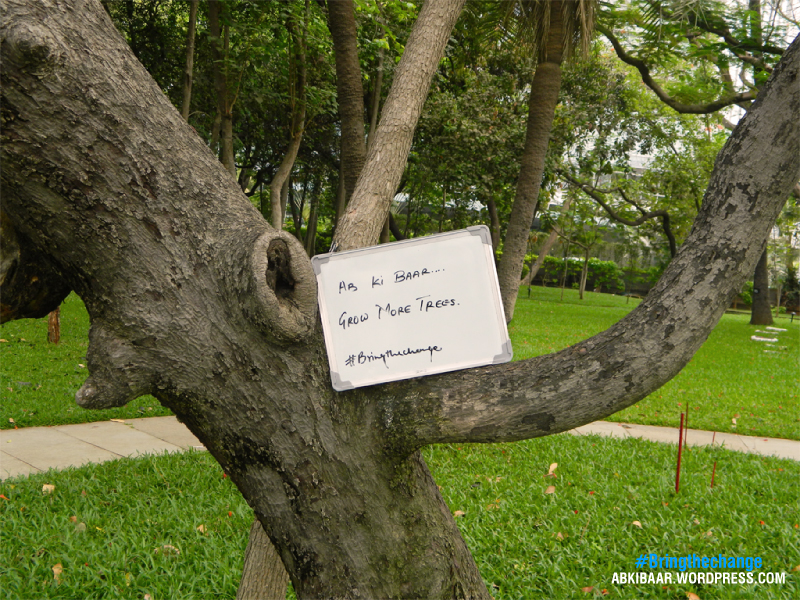 AB KI BAAR....
GROW MORE TREES.
#Bringthechange
#Bringthechange
ABKIBAAR.WORDPRESS.COM